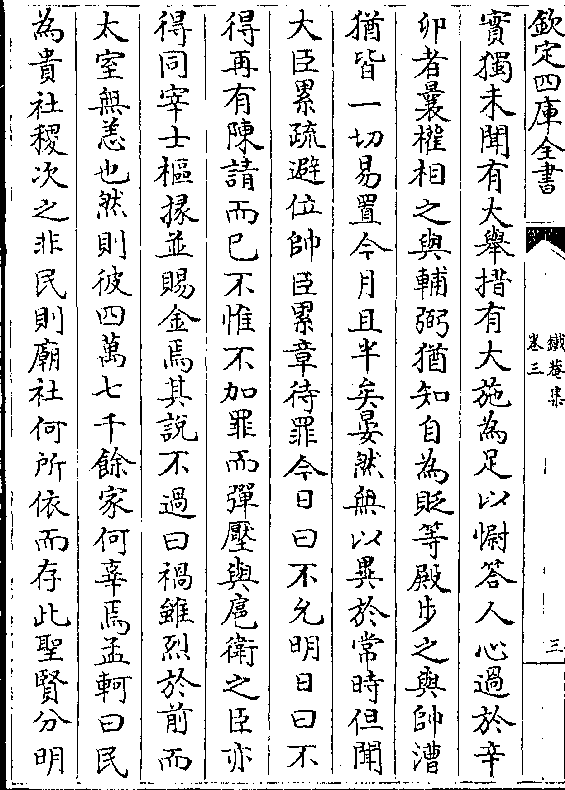 欽定四庫全書
鐵菴集
卷三
三
實獨未聞有大舉措有大施為足以慰答人心過於辛
卯者曩權相之與輔弼猶知自為貶等殿步之與帥漕
猶皆一切易置今月且半矣晏然無以異於常時但聞
大臣累疏避位帥臣累章待罪今日曰不允明日曰不
得再有陳請而已不惟不加罪而彈壓與扈衛之臣亦
得同宰士樞掾並賜金焉其說不過曰禍雖烈於前而
太室無恙也然則彼四萬七千餘家何辜焉孟軻曰民
為貴社稷次之非民則廟社何所依而存此聖賢分明